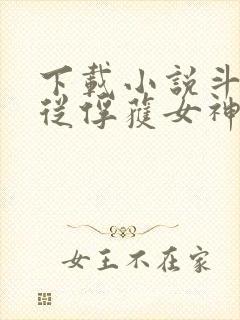 下載小說斗
從俘獲女神
女王不在家